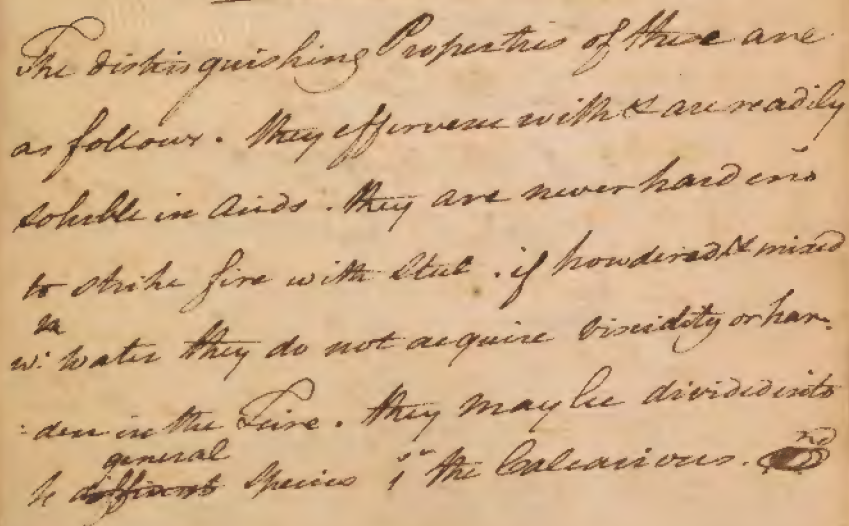 The distinguishing Properties of these are
as follows. they effervesce with & are readily
soluble in Acids. they are never hard eno
to strike fire with Steel. if powdered & mixed
w. water they do not acquire viscidity or har-
:den in the Fire. they may be divided into
general
different Species 1st the Calcarious. nd